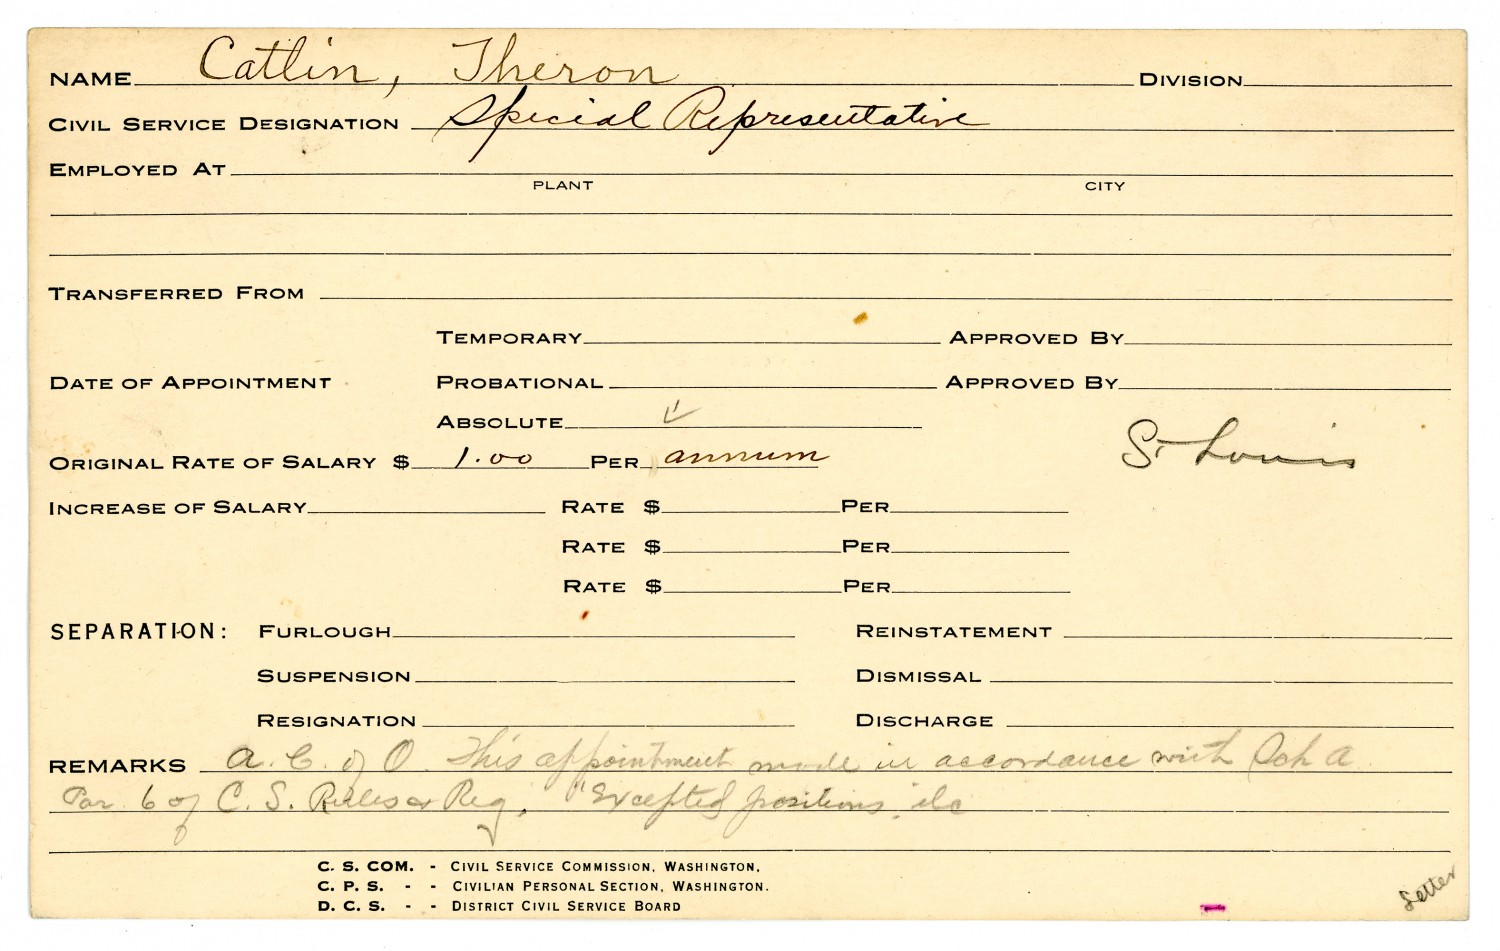 NAME Catlin, Theron DIVISION
CIVIL SERVICE DESIGNATION Special Representative
EMPLOYED AT
PLANT CITY
TRANSFERRED FROM
TEMPORARY APPROVED BY
DATE OF APPOINTMENT PROBATIONAL APPROVED BY
ABSOLUTE ✓
St Louis
ORIGINAL RATE OF SALARY $ 1.00 PER annum
INCREASE OF SALARY RATE $ PER
RATE $ PER
RATE $ PER
SEPARATION: FURLOUGH REINSTATEMENT
SUSPENSION DISMISSAL
RESIGNATION DISCHARGE
REMARKS A. C. of O. This appointment made in accordance with Sch A
Par 6 of C. S. Rules & Reg. "Excepted positions, etc
C. S. COM. - CIVIL SERVICE COMMISSION, WASHINGTON,
C. P. S. - - CIVILIAN PERSONAL SECTION, WASHINGTON.
D. C. S. - - DISTRICT CIVIL SERVICE BOARD
Letter